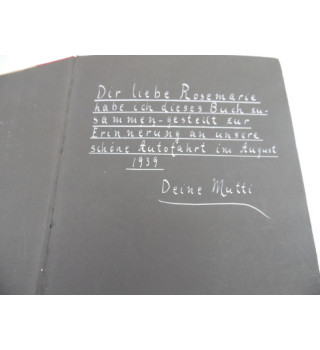 Dir liebe Rosemarie
habe ich dieses Buch zu-
sammen-gestellt zur
Erinnerung an unsere
schöne Autofahrt im August
1939
Deine Mutti